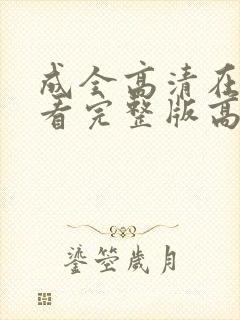 成全高清在
看完整版高
鎏茔岁月